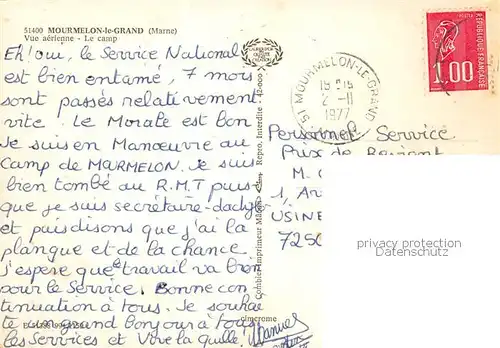 51400 MOURMELON-le-GRAND (Marne)
Vue aérienne - Le camp
Eh! oui, le Service National
est bien entamé, 7 mois
sont passés relativement
vite. Le Morale est bon
Je suis en Manœuvre au
Camp de MARMELON. Je suis
bien tombé au R.M.T puis
que je suis secrétaire-dactylo
et puis disons que j'ai la
planque et de la chance
J'espère que le travail va bien
pour le Service. Bonne con
tinuation à tous. Je souhai
te un grand bonjour à tous
les Services et Vive la quille!
Combier Imprimeur Mâcon
Repro. Interdite
cimcrome
51 MOURMELON-LE-GRAND
15H15
2-11
1977
REPUBLIQUE FRANCAISE
1.00
Personnel Service
Prix de Revient
M.
1, A
USINE
7250
privacy protection
Datenschutz